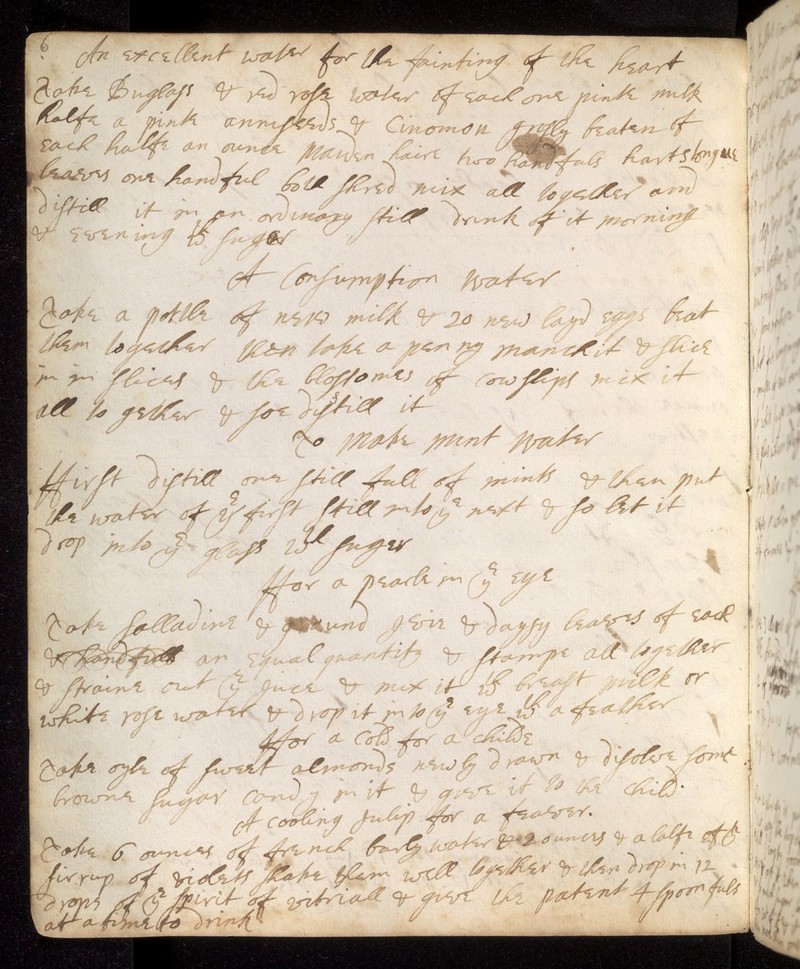 6
An excellent water for the fainting of the heart
Take Buglass & red rose water of each one pinte milk
halfe a pinte anniseeds & Cinomon grosly beaten of
each halfe an ounce maiden haire two handfuls hartstongue
leaves one handful both shred mix all together and
distill it in an ordinary still drink of it morning
& evening wth suger
A Consumption water
Take a pottle of new milk & 20 new layd eggs beat
them together then take a penny manchit & slice
in in slices & the blossomes of cowslips mix it
all to gether & soe distill it
To make mint water
ffirst distill one still full of mint & then put
the water of ye first still into ye next & so let it
drop into ye glass wth suger
ffor a pearle in ye eye
Take salladine & ground Jvie & daysy leaves of each
& handfull an equal quantity & stampe all together
& straine out ye Juce & mix it wth breast milk or
white rose water & drop it into ye eye wth a feather
ffor a Cold for a childe
Take oyle of sweet almonds newly drawn & disolve some
browne sugar candy in it & give it to the child.
A cooling Julip for a feaver.
Take 6 ounces of french barly water & 2 ounces & a halfe of ye
sirrup of violets shake them well together & then drop in 12
drops of ye spirit of vitriall & give the patent 4 spoonfuls
at a time to drink